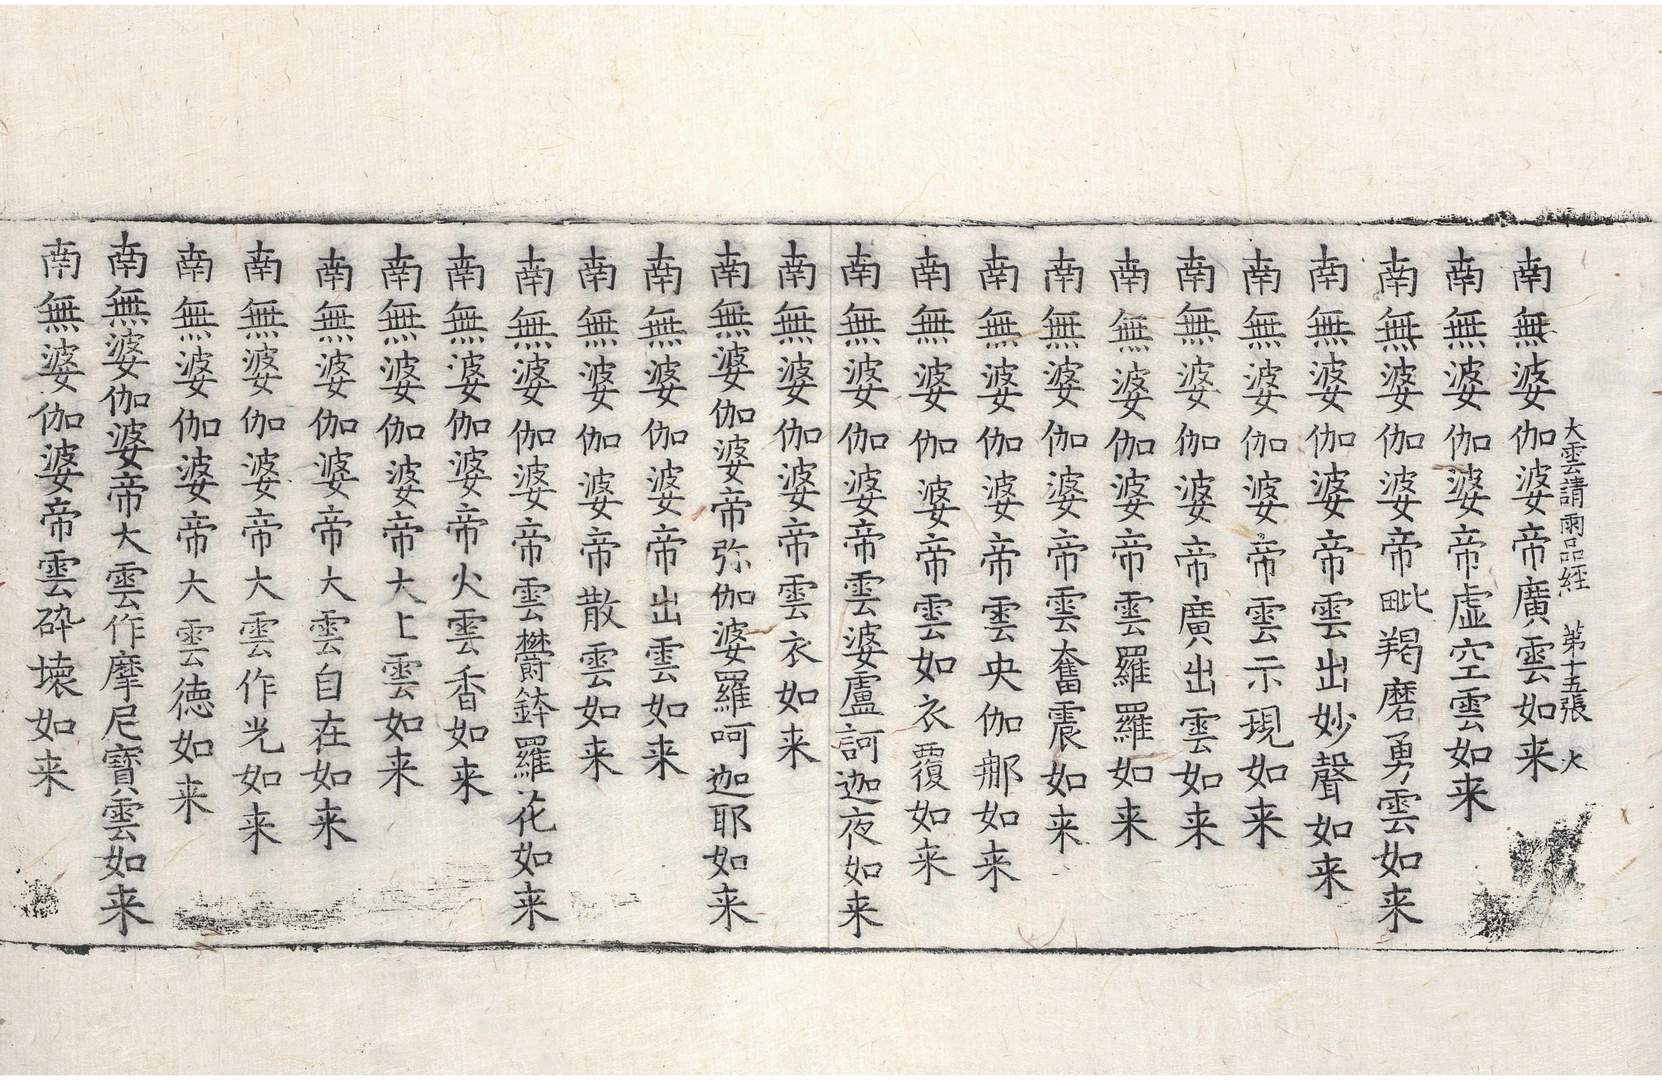 大雲請雨品経　第十五張　火
南無婆伽婆帝廣雲如来
南無婆伽婆帝虚空雲如来
南無婆伽婆帝毗羯磨勇雲如来
南無婆伽婆帝雲出妙聲如来
南無婆伽婆帝雲示現如来
南無婆伽婆帝廣出雲如来
南無婆伽婆帝雲羅羅如来
南無婆伽婆帝雲奮震如来
南無婆伽婆帝雲央伽那如来
南無婆伽婆帝雲如衣覆如来
南無婆伽婆帝雲婆盧訶迦夜如来
南無婆伽婆帝雲衣如来
南無婆伽婆帝弥伽婆羅呵迦耶如来
南無婆伽婆帝出雲如来
南無婆伽婆帝散雲如来
南無婆伽婆帝雲欝鉢羅花如来
南無婆伽婆帝火雲香如来
南無婆伽婆帝大上雲如来
南無婆伽婆帝大雲自在如来
南無婆伽婆帝大雲作光如来
南無婆伽婆帝大雲徳如来
南無婆伽婆帝大雲作摩尼寶雲如来
南無婆伽婆帝雲砕壊如来